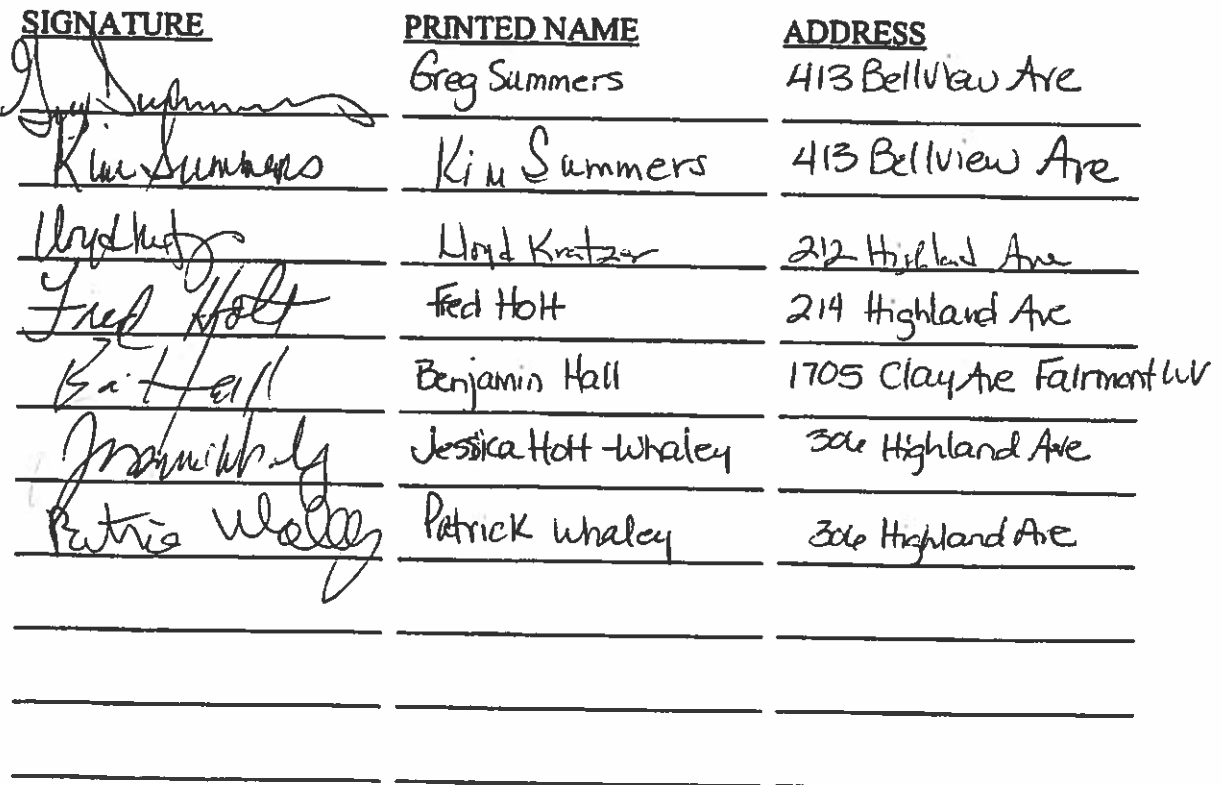 SIGNATURE PRINTED NAME ADDRESS
Greg Summers Greg Summers 413 Bellview Ave
Kim Summers Kim Summers 413 Bellview Ave
Lloyd Lloyd Kratzer 212 Highland Ave
Fred Holt Fred Holt 214 Highland Ave
Hall Benjamin Hall 1705 Clay Ave Fairmont WV
Jessica Holt-Whaley 306 Highland Ave
Patrick Whaley 306 Highland Ave